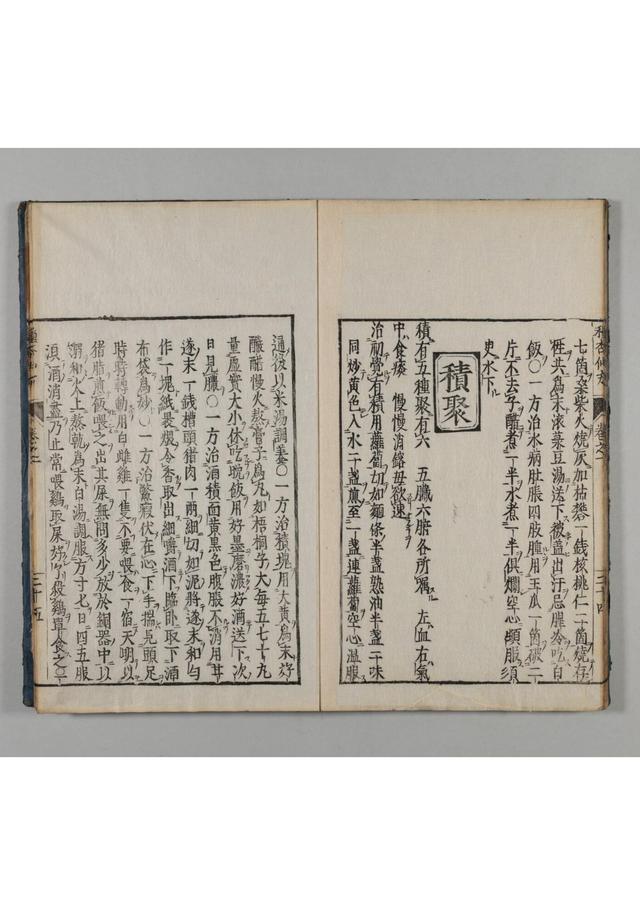 七箇桒柴火燒灰加枯礬一錢核桃仁二箇燒存
性共爲末滾菉豆湯送下被蓋出汗忌腥冷吃白
飯○一方治水病肚脹四肢腫用王瓜一箇破二
片不去子醋煮一半水煮一半俱爛空心頓服須
㕜水下
積聚
積有五種聚有六 五臟六腑各所屬 左血右氣
中食痰 慢慢消鎔毋欲速
治初覺有積用蘿蔔切如麵條半盞熟油半盞二味
同炒黄色入水二盞煎至一盞連蘿蔔空心溫服
種杏仙方
卷之一
三十四
通後以米湯調養○一方治積塊用大黄爲末好
釅醋慢火熬膏子爲丸如梧桐子大每五七十丸
量虛實大小休吃晩飯用好墨磨濃好酒送下次
日見膿○一方治酒積面黄黑色腹脹不消用甘
遂末一錢槽頭猪肉一兩細切如泥將遂末和勻
作一塊紙裹煨令香取出細嚼酒下臨卧取下酒
布袋爲玅○一方治鱉瘕伏在心下手揣見頭足
時時轉動用白雌雞一隻不要喂食一宿天明以
猪脂煎飯喂之出其屎無問多少放於銅器中以
溺和火上熬乾爲末白湯調服方寸七日四五服
須消盡乃止常喂雞取屎好了殺雞單食之
三十五